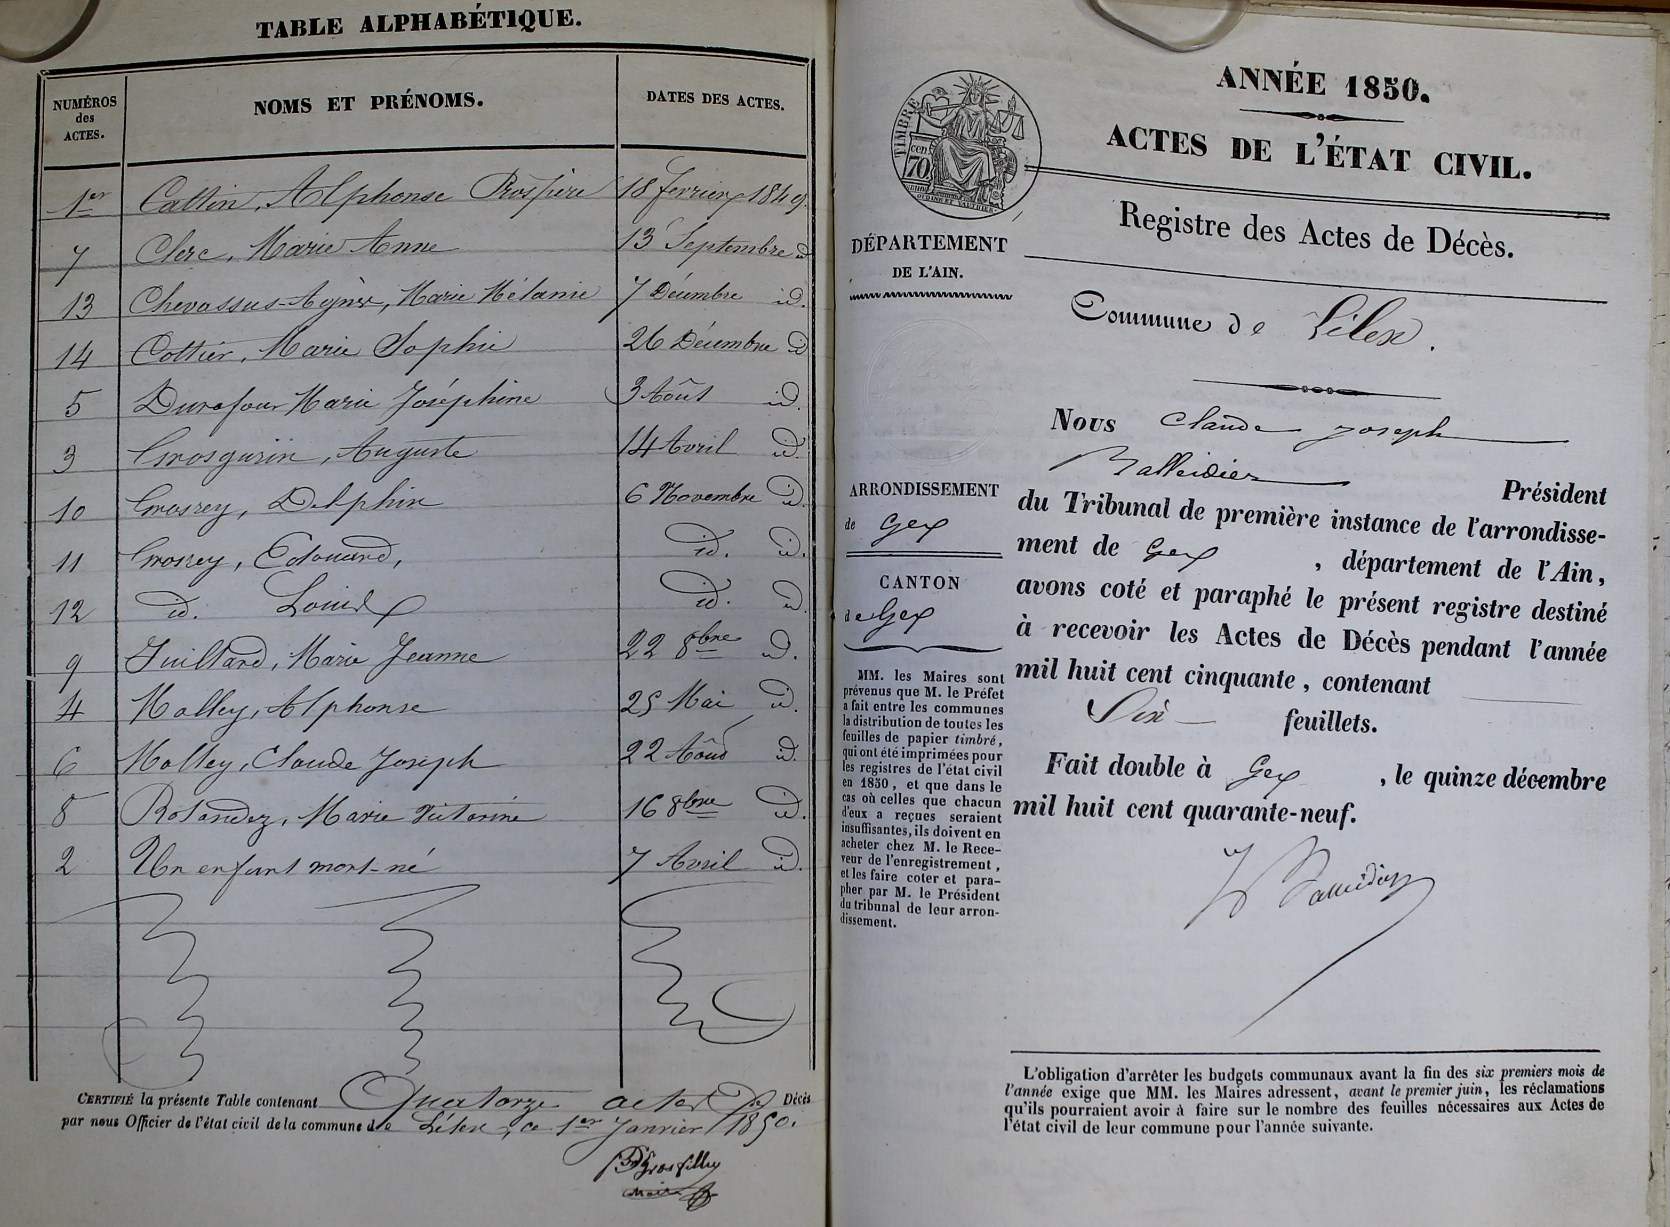 TABLE ALPHABÉTIQUE.
NUMÉROS des ACTES. NOMS ET PRÉNOMS. DATES DES ACTES.
1er Cattin, Alphonse Prospère 18 février 1849.
7 Clerc, Marie Anne 13 Septembre id
13 Chevassus-Agnès, Marie Mélanie 7 Décembre id.
14 Cottier, Marie Sophie 26 Décembre id
5 Durafour Marie Joséphine 3 Août id.
3 Grosgurin, Auguste 14 Avril id.
10 Grosrey, Delphin 6 Novembre id.
11 Grosrey, Edouard, id. id.
12 id. Louis id. id.
9 Juillard, Marie Jeanne 22 8bre id.
4 Molley, Alphonse 25 Mai id.
6 Molley, Claude Joseph 22 Août id.
8 Rolandez, Marie Victorine 16 8bre id.
2 Un enfant mort-né 7 Avril id.
CERTIFIÉ la présente Table contenant Quatorze actes de Décès
par nous Officier de l'état civil de la commune de Lélex, ce 1er Janvier 1850.
Grosfilley
Maire
ANNÉE 1850.
ACTES DE L'ÉTAT CIVIL.
TIMBRE
70 cen
Registre des Actes de Décès.
DÉPARTEMENT
DE L'AIN.
Commune de Lélex.
ARRONDISSEMENT
de Gex
CANTON
de Gex
MM. les Maires sont
prévenus que M. le Préfet
a fait entre les communes
la distribution de toutes les
feuilles de papier timbré,
qui ont été imprimées pour
les registres de l'état civil
en 1850, et que dans le
cas où celles que chacun
d'eux a reçues seraient
insuffisantes, ils doivent en
acheter chez M. le Rece-
veur de l'enregistrement,
et les faire coter et para-
pher par M. le Président
du tribunal de leur arron-
dissement.
Nous Claude Joseph
Balleidier Président
du Tribunal de première instance de l'arrondisse-
ment de Gex, département de l'Ain,
avons coté et paraphé le présent registre destiné
à recevoir les Actes de Décès pendant l'année
mil huit cent cinquante, contenant
Six feuillets.
Fait double à Gex, le quinze décembre
mil huit cent quarante-neuf.
Balleidier
L'obligation d'arrêter les budgets communaux avant la fin des six premiers mois de
l'année exige que MM. les Maires adressent, avant le premier juin, les réclamations
qu'ils pourraient avoir à faire sur le nombre des feuilles nécessaires aux Actes de
l'état civil de leur commune pour l'année suivante.